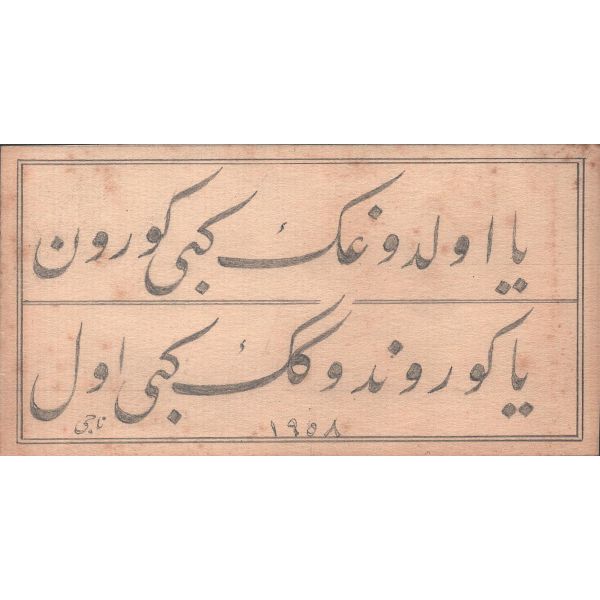 يا اولدوغك كبى كورون
يا كوروندوكك كبى اول
ناجى ١٩٥٨